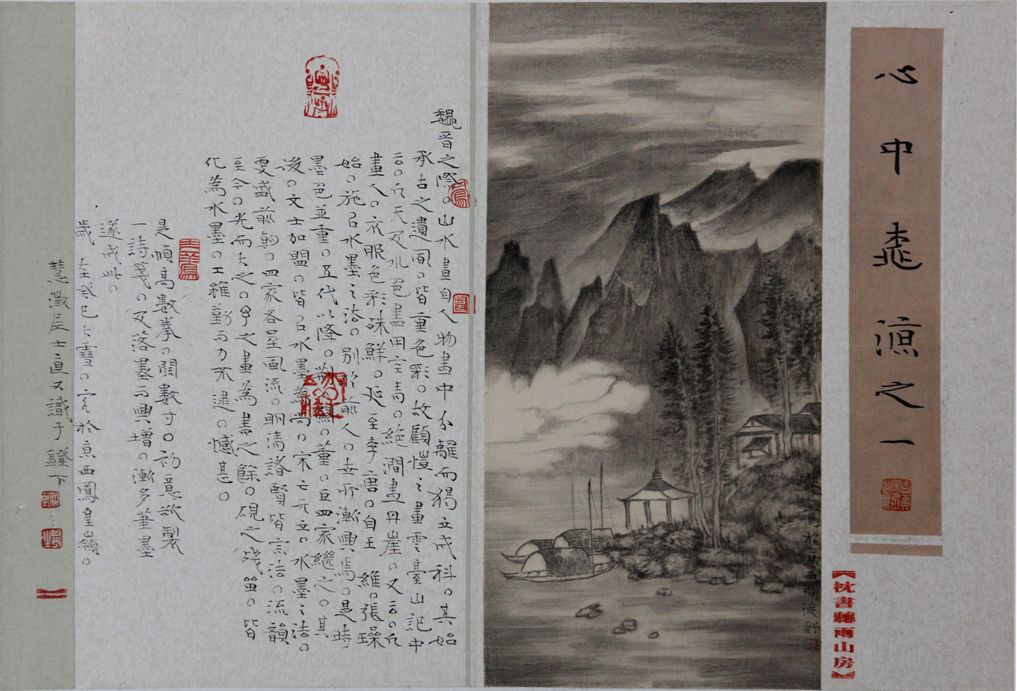 心中桃源之一
【枕書聽雨山房】
魏晉之際。山水畫自人物畫中分離而獨立成科。其始
承古之遺風。皆重色彩。故顧愷之畫雲臺山記中
云。凡天及水色盡用空青。絕澗畫丹崖。又云。凡
畫人。衣服色彩殊鮮。延至李唐。自王維。張璪
始。施以水墨之法。別於前人。世所漸興焉。是時
墨色並重。五代以降。荊關董巨四家繼之。其
後。文士加盟。皆以水墨為尚。宋之元立。水墨之法。
更盛前朝。四家各呈風流。明清諸賢皆宗法。流韻
至今。光而大之。予之畫為書之餘。硯之殘留。皆
化為水墨。工雖勤。力不逮。憾甚。
是幀高數拳。闊數寸。初意欲製
一詩箋。及落墨而興增。漸多筆墨
遂成此。
歲在癸巳大雪。於京西鳳皇嶺。
慧澂居士直又識于鐙下